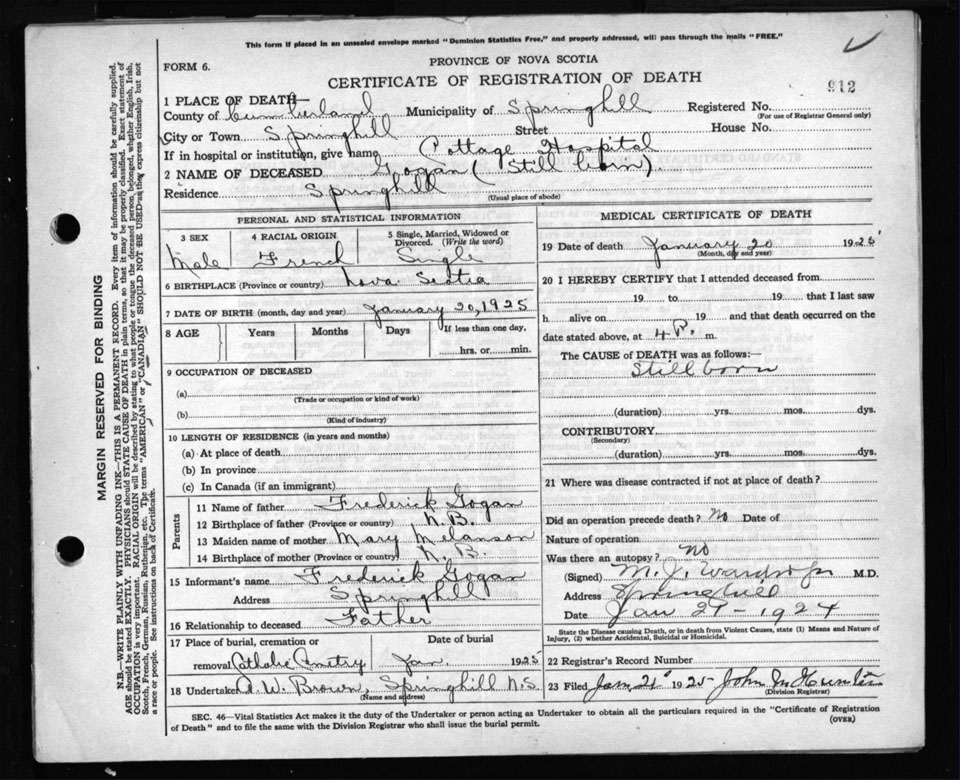 This form if placed in an unsealed envelope marked "Dominion Statistics Free," and properly addressed, will pass through the mails "FREE."
FORM 6.
PROVINCE OF NOVA SCOTIA
CERTIFICATE OF REGISTRATION OF DEATH
912
1 PLACE OF DEATH—
County of Cumberland Municipality of Springhill Registered No.
(For use of Registrar General only)
City or Town Springhill Street House No.
If in hospital or institution, give name Cottage Hospital
2 NAME OF DECEASED Gogan (Still born)
Residence Springhill
(Usual place of abode)
PERSONAL AND STATISTICAL INFORMATION
3 SEX 4 RACIAL ORIGIN 5 Single, Married, Widowed or Divorced. (Write the word)
Male French Single
6 BIRTHPLACE (Province or country) Nova Scotia
7 DATE OF BIRTH (month, day and year) January 20, 1925
8 AGE Years Months Days If less than one day,
hrs. or min.
9 OCCUPATION OF DECEASED
(a)
(Trade or occupation or kind of work)
(b)
(Kind of industry)
10 LENGTH OF RESIDENCE (in years and months)
(a) At place of death
(b) In province
(c) In Canada (if an immigrant)
Parents
11 Name of father Frederick Gogan
12 Birthplace of father (Province or country) N.B.
13 Maiden name of mother Mary Melanson
14 Birthplace of mother (Province or country) N.B.
15 Informant's name Frederick Gogan
Address Springhill
16 Relationship to deceased Father
17 Place of burial, cremation or Date of burial
removal Catholic Cemetry Jan. 1925
18 Undertaker A. W. Brown, Springhill N.S.
(Name and address)
MEDICAL CERTIFICATE OF DEATH
19 Date of death January 20 192
(Month, day and year)
20 I HEREBY CERTIFY that I attended deceased from
19 to 19 that I last saw
h alive on 19 and that death occurred on the
date stated above, at 4 P. m.
The CAUSE of DEATH was as follows:—
Still born
(duration) yrs. mos. dys.
CONTRIBUTORY
(Secondary)
(duration) yrs. mos. dys.
21 Where was disease contracted if not at place of death?
Did an operation precede death? No Date of
Nature of operation
Was there an autopsy? No
(Signed) M. J. Wardrope M.D.
Address Springhill
Date Jan 21 - 1924
State the Disease causing Death, or in death from Violent Causes, state (1) Means and Nature of
Injury, (2) whether Accidental, Suicidal or Homicidal.
22 Registrar's Record Number
23 Filed Jan 21 1925 John M Hunter
(Division Registrar)
SEC. 46—Vital Statistics Act makes it the duty of the Undertaker or person acting as Undertaker to obtain all the particulars required in the "Certificate of Registration
of Death" and to file the same with the Division Registrar who shall issue the burial permit. (OVER)
MARGIN RESERVED FOR BINDING
N.B.—WRITE PLAINLY WITH UNFADING INK—THIS IS A PERMANENT RECORD. Every item of information should be carefully supplied.
AGE should be stated EXACTLY. PHYSICIANS should STATE CAUSE OF DEATH in plain terms, so that it may be properly classified. Exact statement of
OCCUPATION is very important. RACIAL ORIGIN will be described by stating to what people or tongue the deceased person belonged, whether English, Irish,
Scotch, French, German, Russian, Ruthenian, etc. The terms "AMERICAN" or "CANADIAN" SHOULD NOT BE USED as they express citizenship but not
a race or people. See instructions on back of Certificate.